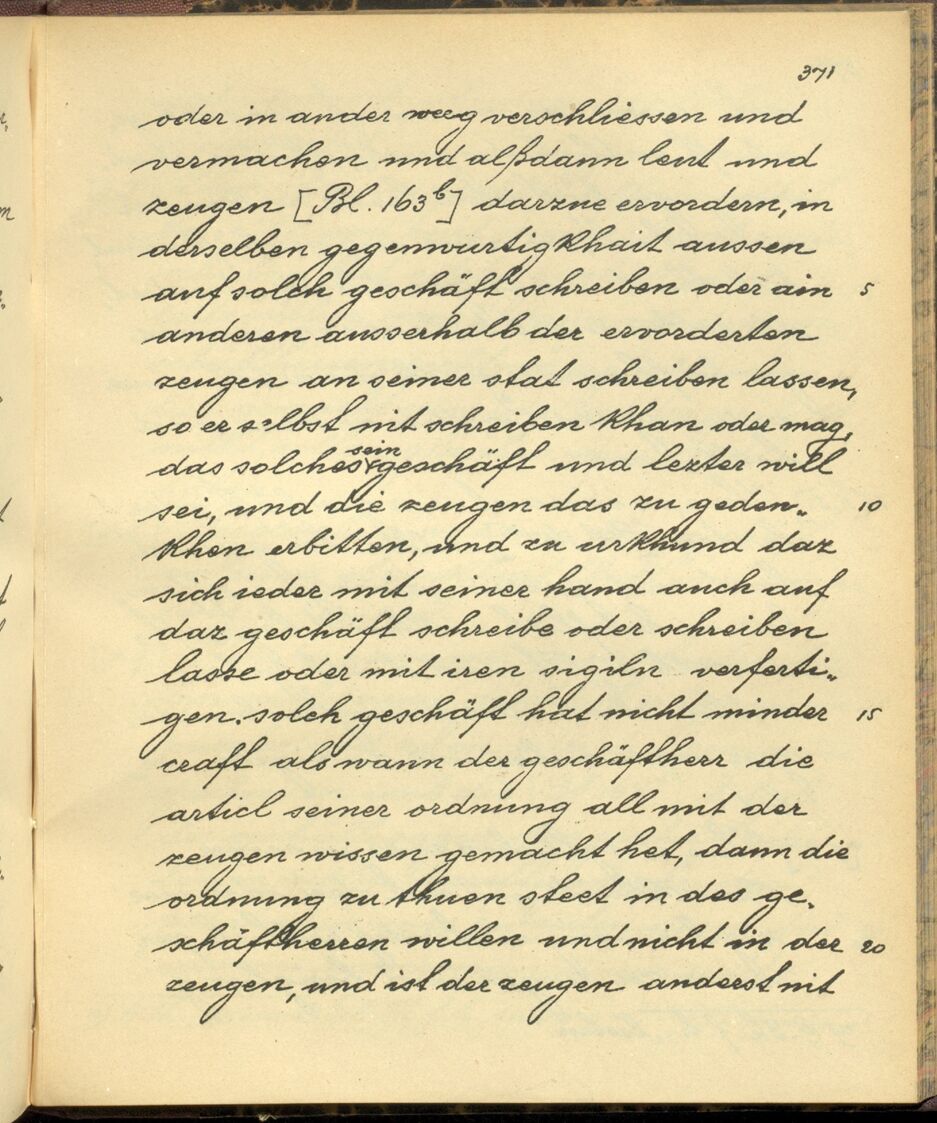 371
oder in ander weeg verschliessen und
vermachen und alßdann leut und
zeugen [Bl. 163b] darzue ervordern, in
derselben gegenwurtigkhait aussen
auf solch geschäft schreiben oder ain 5
anderen ausserhalb der ervorderten
zeugen an seiner stat schreiben lassen,
so er selbst nit schreiben khan oder mag,
sein
das solches geschäft und lezter will
sei, und die zeugen das zu geden„ 10
khen erbitten, und zu urkhund daz
sich ieder mit seiner hand auch auf
daz geschäft schreibe oder schreiben
lasse oder mit iren sigiln verferti„
gen. solch geschäft hat nicht minder 15
craft als wann der geschäftherr die
articl seiner ordnung all mit der
zeugen wissen gemacht het, dann die
ordnung zu thuen steet in des ge„
schäftherren willen und nicht in der 20
zeugen, und ist der zeugen anderst nit